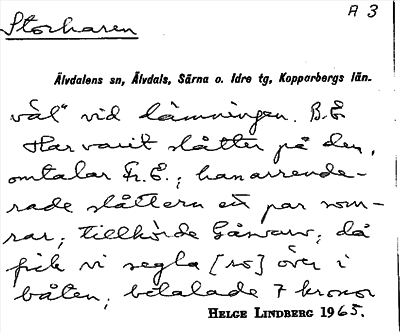 Storharen
A 3
Älvdalens sn, Älvdals, Särna o. Idre tg, Kopparbergs län.
väl" vid lämningen. B.E
Har varit slåtter på den,
omtalar Fr. E.; han arrende-
rade slåttern ett par som-
rar; tillhörde Gåsvarv; då
fick vi segla [ro] över i
båten; betalade 7 kronor
HELGE LINDBERG 1965.